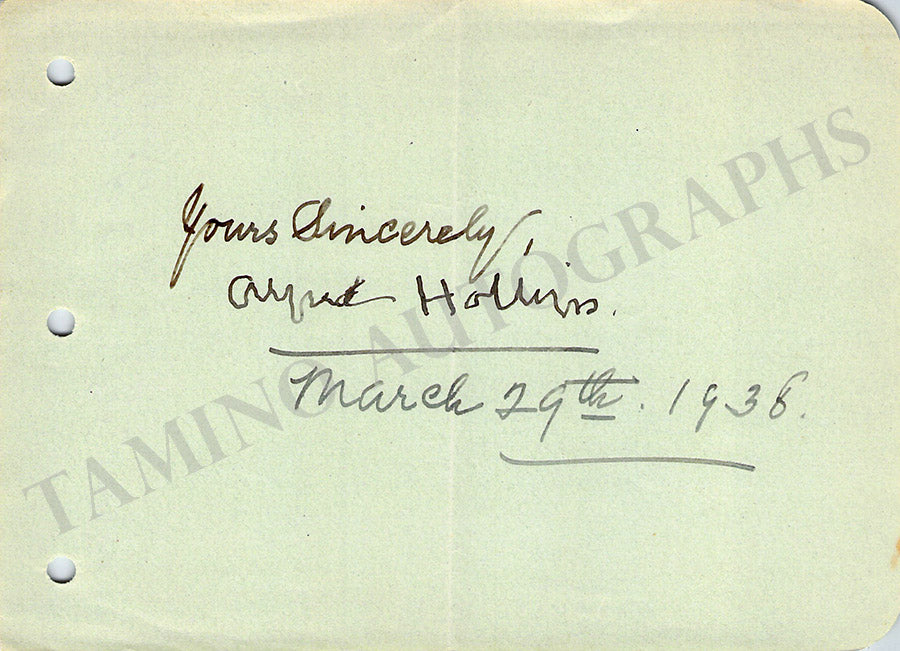 Yours Sincerely,
Alfred Hollins.
March 29th. 1936.
TAMINO AUTOGRAPHS